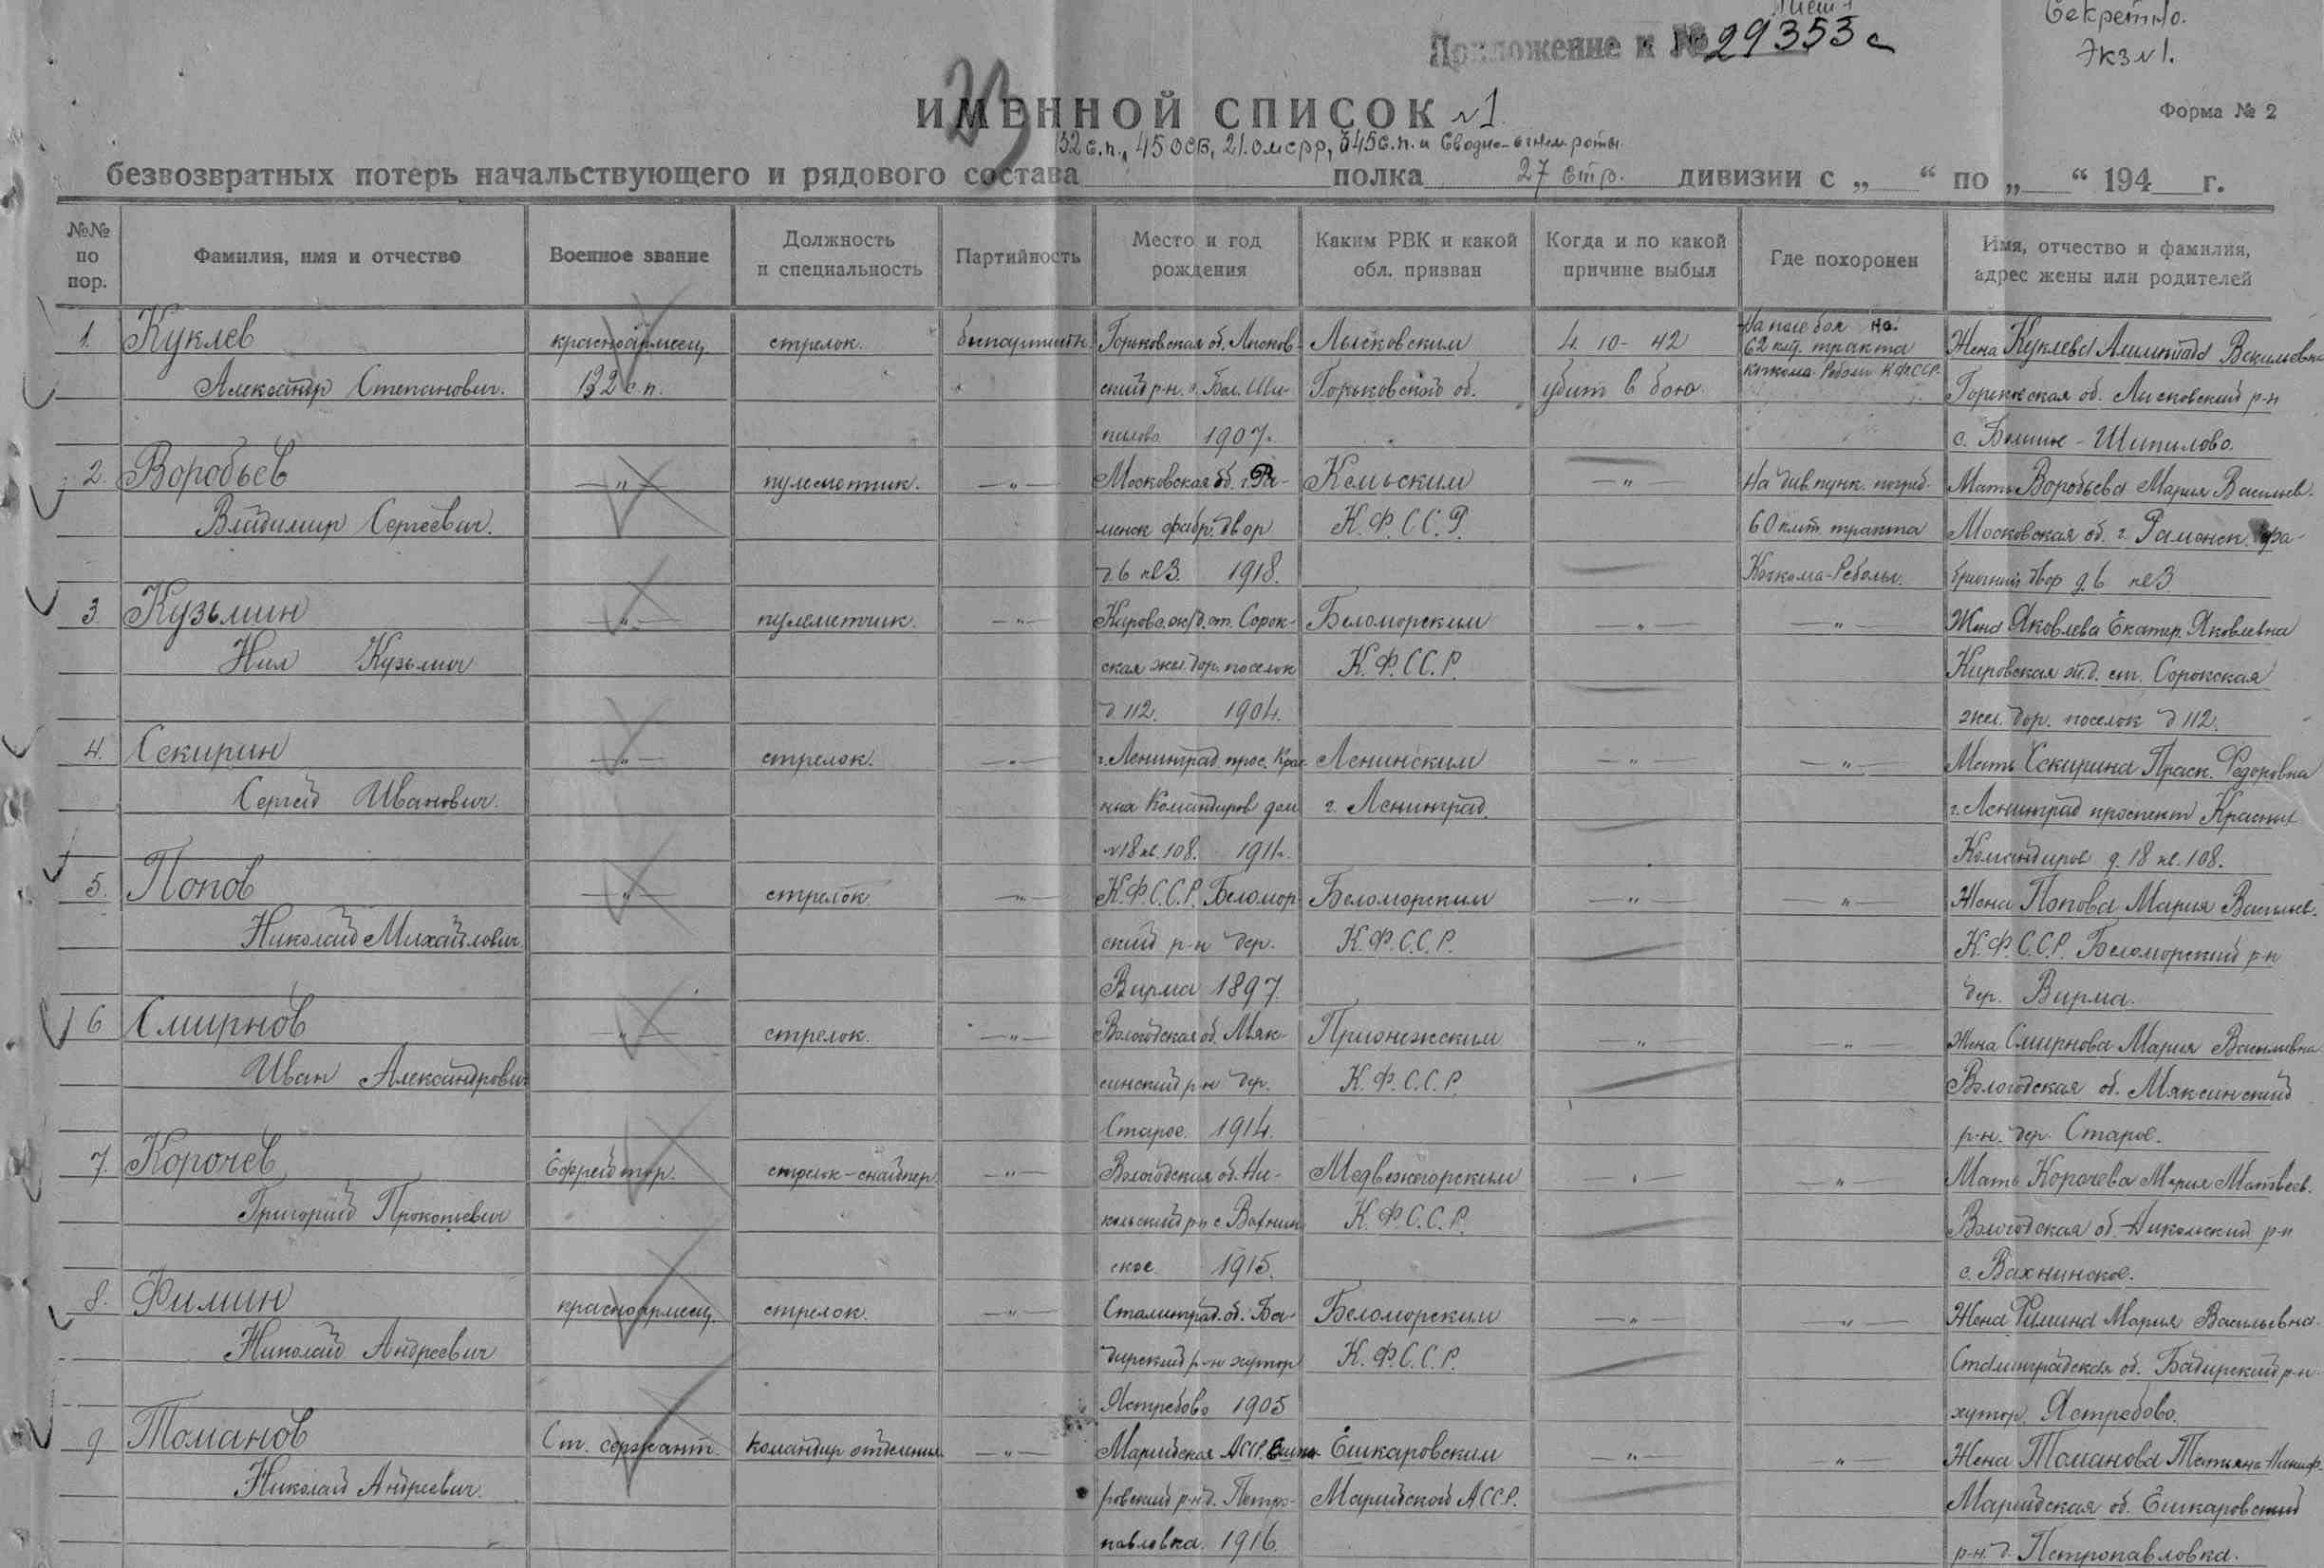 Лист 1
Секретно.
Экз №1.
Приложение к № 29353с
23
ИМЕННОЙ СПИСОК №1.
Форма № 2
132 с.п., 45 ОСБ, 21. омсрр, 345 с.п. и Сводно-огнем роты.
безвозвратных потерь начальствующего и рядового состава полка 27 стр. дивизии с „ “ по „ “ 194 г.
№№ по пор. Фамилия, имя и отчество Военное звание Должность и специальность Партийность Место и год рождения Каким РВК и какой обл. призван Когда и по какой причине выбыл Где похоронен Имя, отчество и фамилия, адрес жены или родителей
1. Куклев красноармеец стрелок. беспартийн. Горьковская об. Лысков- Лысковским 4. 10- 42 На поле боя на 62 клм. тракта Жена Куклева Васильевна
Александр Степанович. 132 с.п. ский р-н. с. Бол. Ши- Горьковской об. убит в бою Кочкома-Реболы КФССР. Горьковская об. Лысковский р-н
пилово 1907. с. Большое-Шипилово.
2. Воробьев —„— пулеметчик. —„— Московская об. г. Ра- Кемьским —„— На див. пунк. погреб. Мать Воробьева Мария Васильев.
Владимир Сергеевич. менск фабр. двор К.Ф.С.С.Р. 60 клм. тракта Московская об. г. Раменск. фа-
д. 6 кв 3. 1918. Кочкома-Реболы. бричный двор д. 6 кв 3
3. Кузьмин —„— пулеметчик. —„— Кировс. ж/д. ст. Сорок- Беломорским —„— —„— Жена Яковлева Екатер. Яковлевна
Нил Кузьмич ская жел. дор. поселок К.Ф.С.С.Р. Кировская ж.д. ст. Сорокская
д. 112. 1904. жел. дор. поселок д 112.
4. Секирин —„— стрелок. —„— г. Ленинград. прос. Крас- Ленинским —„— —„— Мать Секирина Праск. Федоровна
Сергей Иванович. ных Командиров дом г. Ленинград. г. Ленинград проспект Красных
№18 кв. 108. 1911. Командиров д. 18 кв. 108.
5. Попов —„— стрелок. —„— К.Ф.С.С.Р. Беломор- Беломорским —„— —„— Жена Попова Мария Васильев.
Николай Михайлович ский р-н дер. К.Ф.С.С.Р. К.Ф.С.С.Р. Беломорский р-н
Вирма 1897. дер. Вирма.
6 Смирнов —„— стрелок. —„— Вологодская об. Мяк- Прионежским —„— —„— Жена Смирнова Мария Васильевна
Иван Александрович синский р-н дер. К.Ф.С.С.Р. Вологодская об. Мяксинский
Старое. 1914. р-н. дер. Старое.
7. Корочев Ефрейтор. стрелок-снайпер. —„— Вологодская об. Ни- Медвежегорским —„— —„— Мать Корочева Мария Матвеев.
Григорий Прокопьевич кольский р-н с. Вахнин- К.Ф.С.С.Р. Вологодская об. Никольский р-н
ское 1915. с. Вахнинское.
8. Филин красноармеец. стрелок. —„— Сталинград. об. Ба- Беломорским —„— —„— Жена Филина Мария Васильевна.
Николай Андреевич дирский р-н хутор К.Ф.С.С.Р. Сталинградская об. Бадирский р-н
Ястребово 1905 хутор. Ястребово.
9 Томанов Ст. сержант. командир отделения —„— Марийская АССР. Ешка- Ешкаровским —„— —„— Жена Томанова Татьяна
Николай Андреевич. ровский р-н д. Петро- Марийской АССР. Марийская об. Ешкаровский
павловка. 1916. р-н. д. Петропавловка.